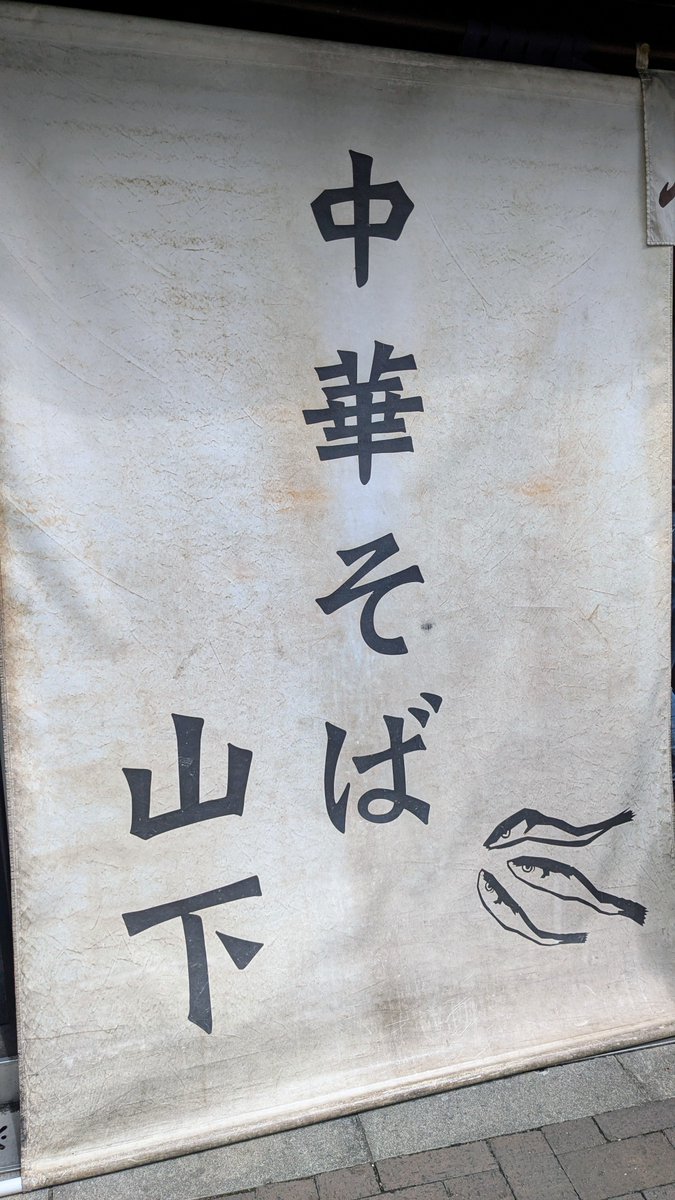 中華そば
山下